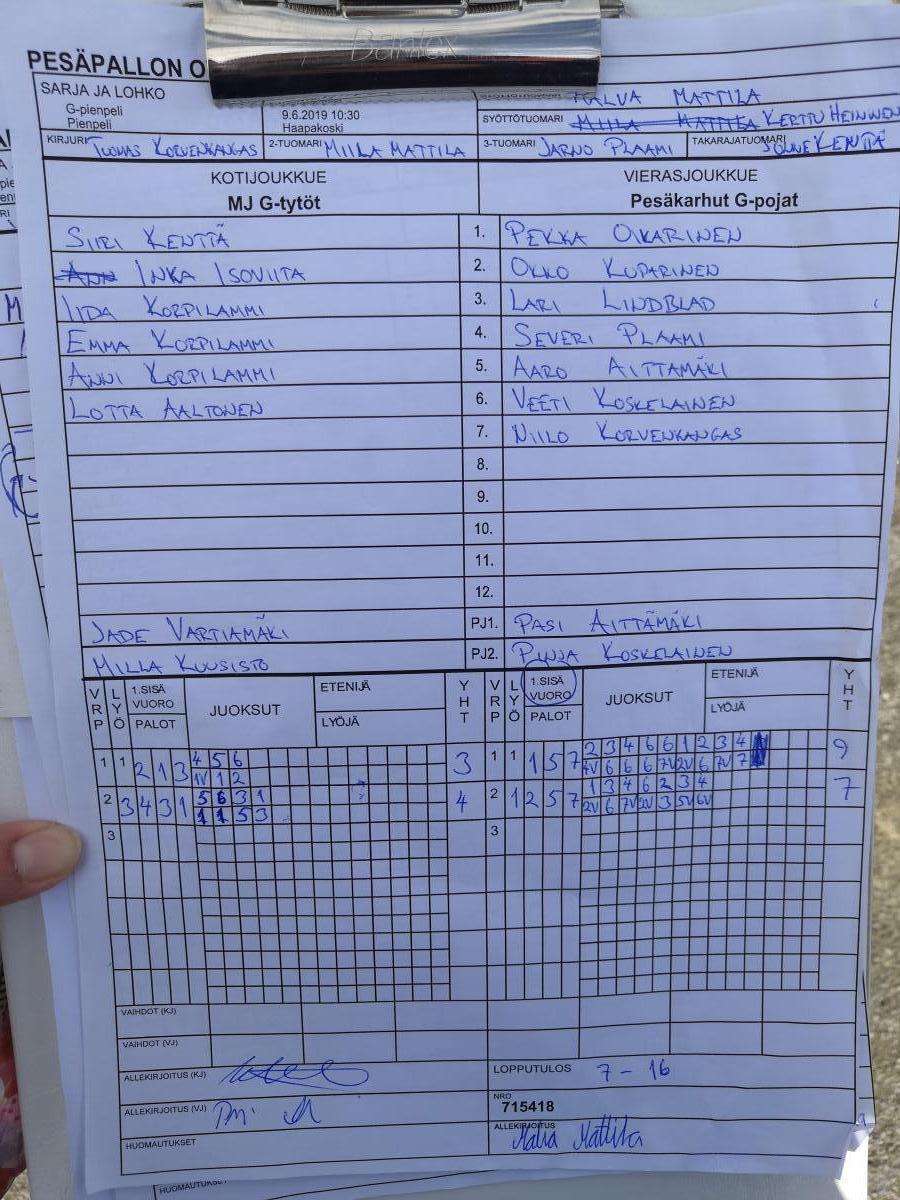 Bantex
PESÄPALLON O
SARJA JA LOHKO
G-pienpeli
Pienpeli
9.6.2019 10:30
Haapakoski
MALVA MATTILA
SYÖTTÖTUOMARI MIILA MATTILA KERTTU HEININEN
KIRJURI TUOMAS KORVENKANGAS 2-TUOMARI MIILA MATTILA 3-TUOMARI JARNO PLAAMI TAKARAJATUOMARI KENTTÄ
KOTIJOUKKUE VIERASJOUKKUE
MJ G-tytöt Pesäkarhut G-pojat
SIIRI KENTTÄ 1. PEKKA OIKARINEN
ANN INKA ISOVIITA 2. OKKO KUPARINEN
IIDA KORPILAMMI 3. LARI LINDBLAD
EMMA KORPILAMMI 4. SEVERI PLAAMI
ANNI KORPILAMMI 5. AARO AITTAMÄKI
LOTTA AALTONEN 6. VEETI KOSKELAINEN
7. NIILO KORVENKANGAS
8.
9.
10.
11.
12.
JADE VARTIAMÄKI PJ1. PASI AITTÄMÄKI
MILLA KUUSISTO PJ2. PINJA KOSKELAINEN
VRP LYÖ 1.SISÄ VUORO PALOT JUOKSUT ETENIJÄ LYÖJÄ YHT VRP LYÖ 1.SISÄ VUORO PALOT JUOKSUT ETENIJÄ LYÖJÄ YHT
1 1 2 1 3 4 5 6 3 1 1 1 5 7 2 3 4 6 6 1 2 3 4 9
1V 1 2 4V 6 6 6 7V 2V 6 7V 7
2 3 4 3 1 5 6 3 1 4 2 1 2 5 7 1 3 4 6 2 3 4 7
1 1 5 3 2V 6 7V 2V 3 5V 6V
3 3
VAIHDOT (KJ)
VAIHDOT (VJ)
ALLEKIRJOITUS (KJ) LOPPUTULOS 7 - 16
ALLEKIRJOITUS (VJ) NRO
715418
HUOMAUTUKSET ALLEKIRJOITUS Malva Mattila
HUOMAUTUKSET